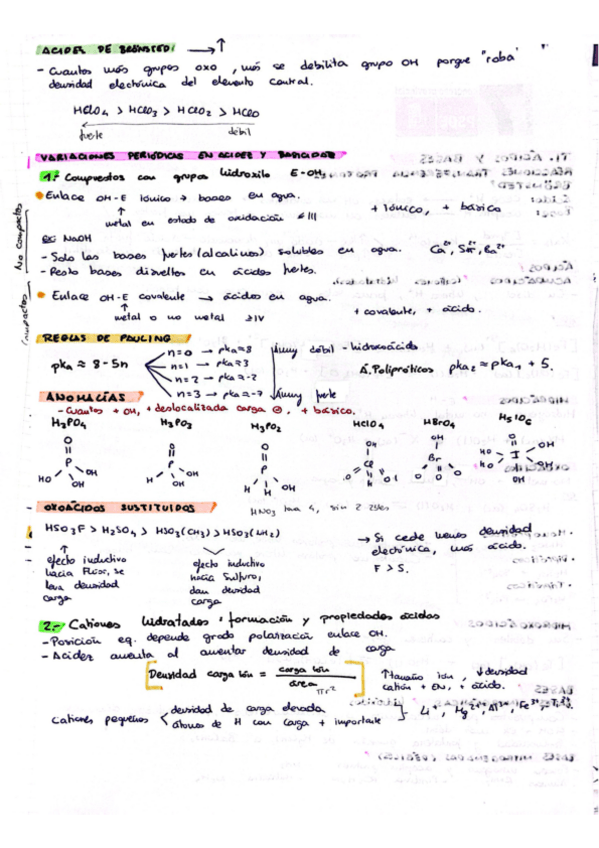 ACIDEZ DE BRÖNSTED: ⟶ ↑
- Cuantos más grupos oxo, más se debilita grupo OH porque "roba"
densidad electrónica del elemento central.
HClO4 > HClO3 > HClO2 > HClO
fuerte débil
VARIACIONES PERIÓDICAS EN ACIDEZ Y BASICIDAD
1.- Compuestos con grupos hidroxilo E-OH
• Enlace OH-E Iónico → bases en agua. + Iónico, + básico
↑
metal en estado de oxidación ≤ III
ex: NaOH
- Solo las bases fuertes (alcalinos) solubles en agua. Ca²⁺, Sr²⁺, Ba²⁺
- Resto bases disueltos en ácidos fuertes.
No compactos
• Enlace OH-E covalente → ácidos en agua.
↑
metal o no metal ≥IV + covalente, + ácido.
Compactos
REGLAS DE PAULING
pka ≈ 8-5n
n=0 → pka=8
n=1 → pka=3
n=2 → pka=-2
n=3 → pka=-7
muy débil - hidroxoácido
muy fuerte
A. Polipróticos pka2 ≈ pka1 + 5.
ANOMALÍAS
- Cuantos + OH, + deslocalizada carga ⊖, + básico.
H3PO4 H3PO3 H3PO2 HClO4 HBrO4 H5IO6
O P OH HO OH
O P H OH OH
O P H H OH
OH Cl O O O
OH Br O O O
O HO HO I OH OH OH
OXOÁCIDOS SUSTITUIDOS
HSO3F > H2SO4 > HSO3(CH3) > HSO2(NH2)
↑
efecto inductivo
hacia Flúor, se
lleva densidad
carga
efecto inductivo
hacia Sulfuro,
dan densidad
carga
→ Si cede menos densidad
electrónica, más ácido.
F > S.
2.- Cationes hidratados: formación y propiedades ácidas
- Posición eq. depende grado polarización enlace OH.
- Acidez aumenta al aumentar densidad de carga
Densidad carga ión = carga ión / área
πr²
↑ tamaño ión, ↓ densidad
catión + EN, + ácido.
Cationes pequeños < densidad de carga elevada
átomos de H con carga + importante
] Li⁺, Mg²⁺, Al³⁺, Fe³⁺, Ti⁴⁺